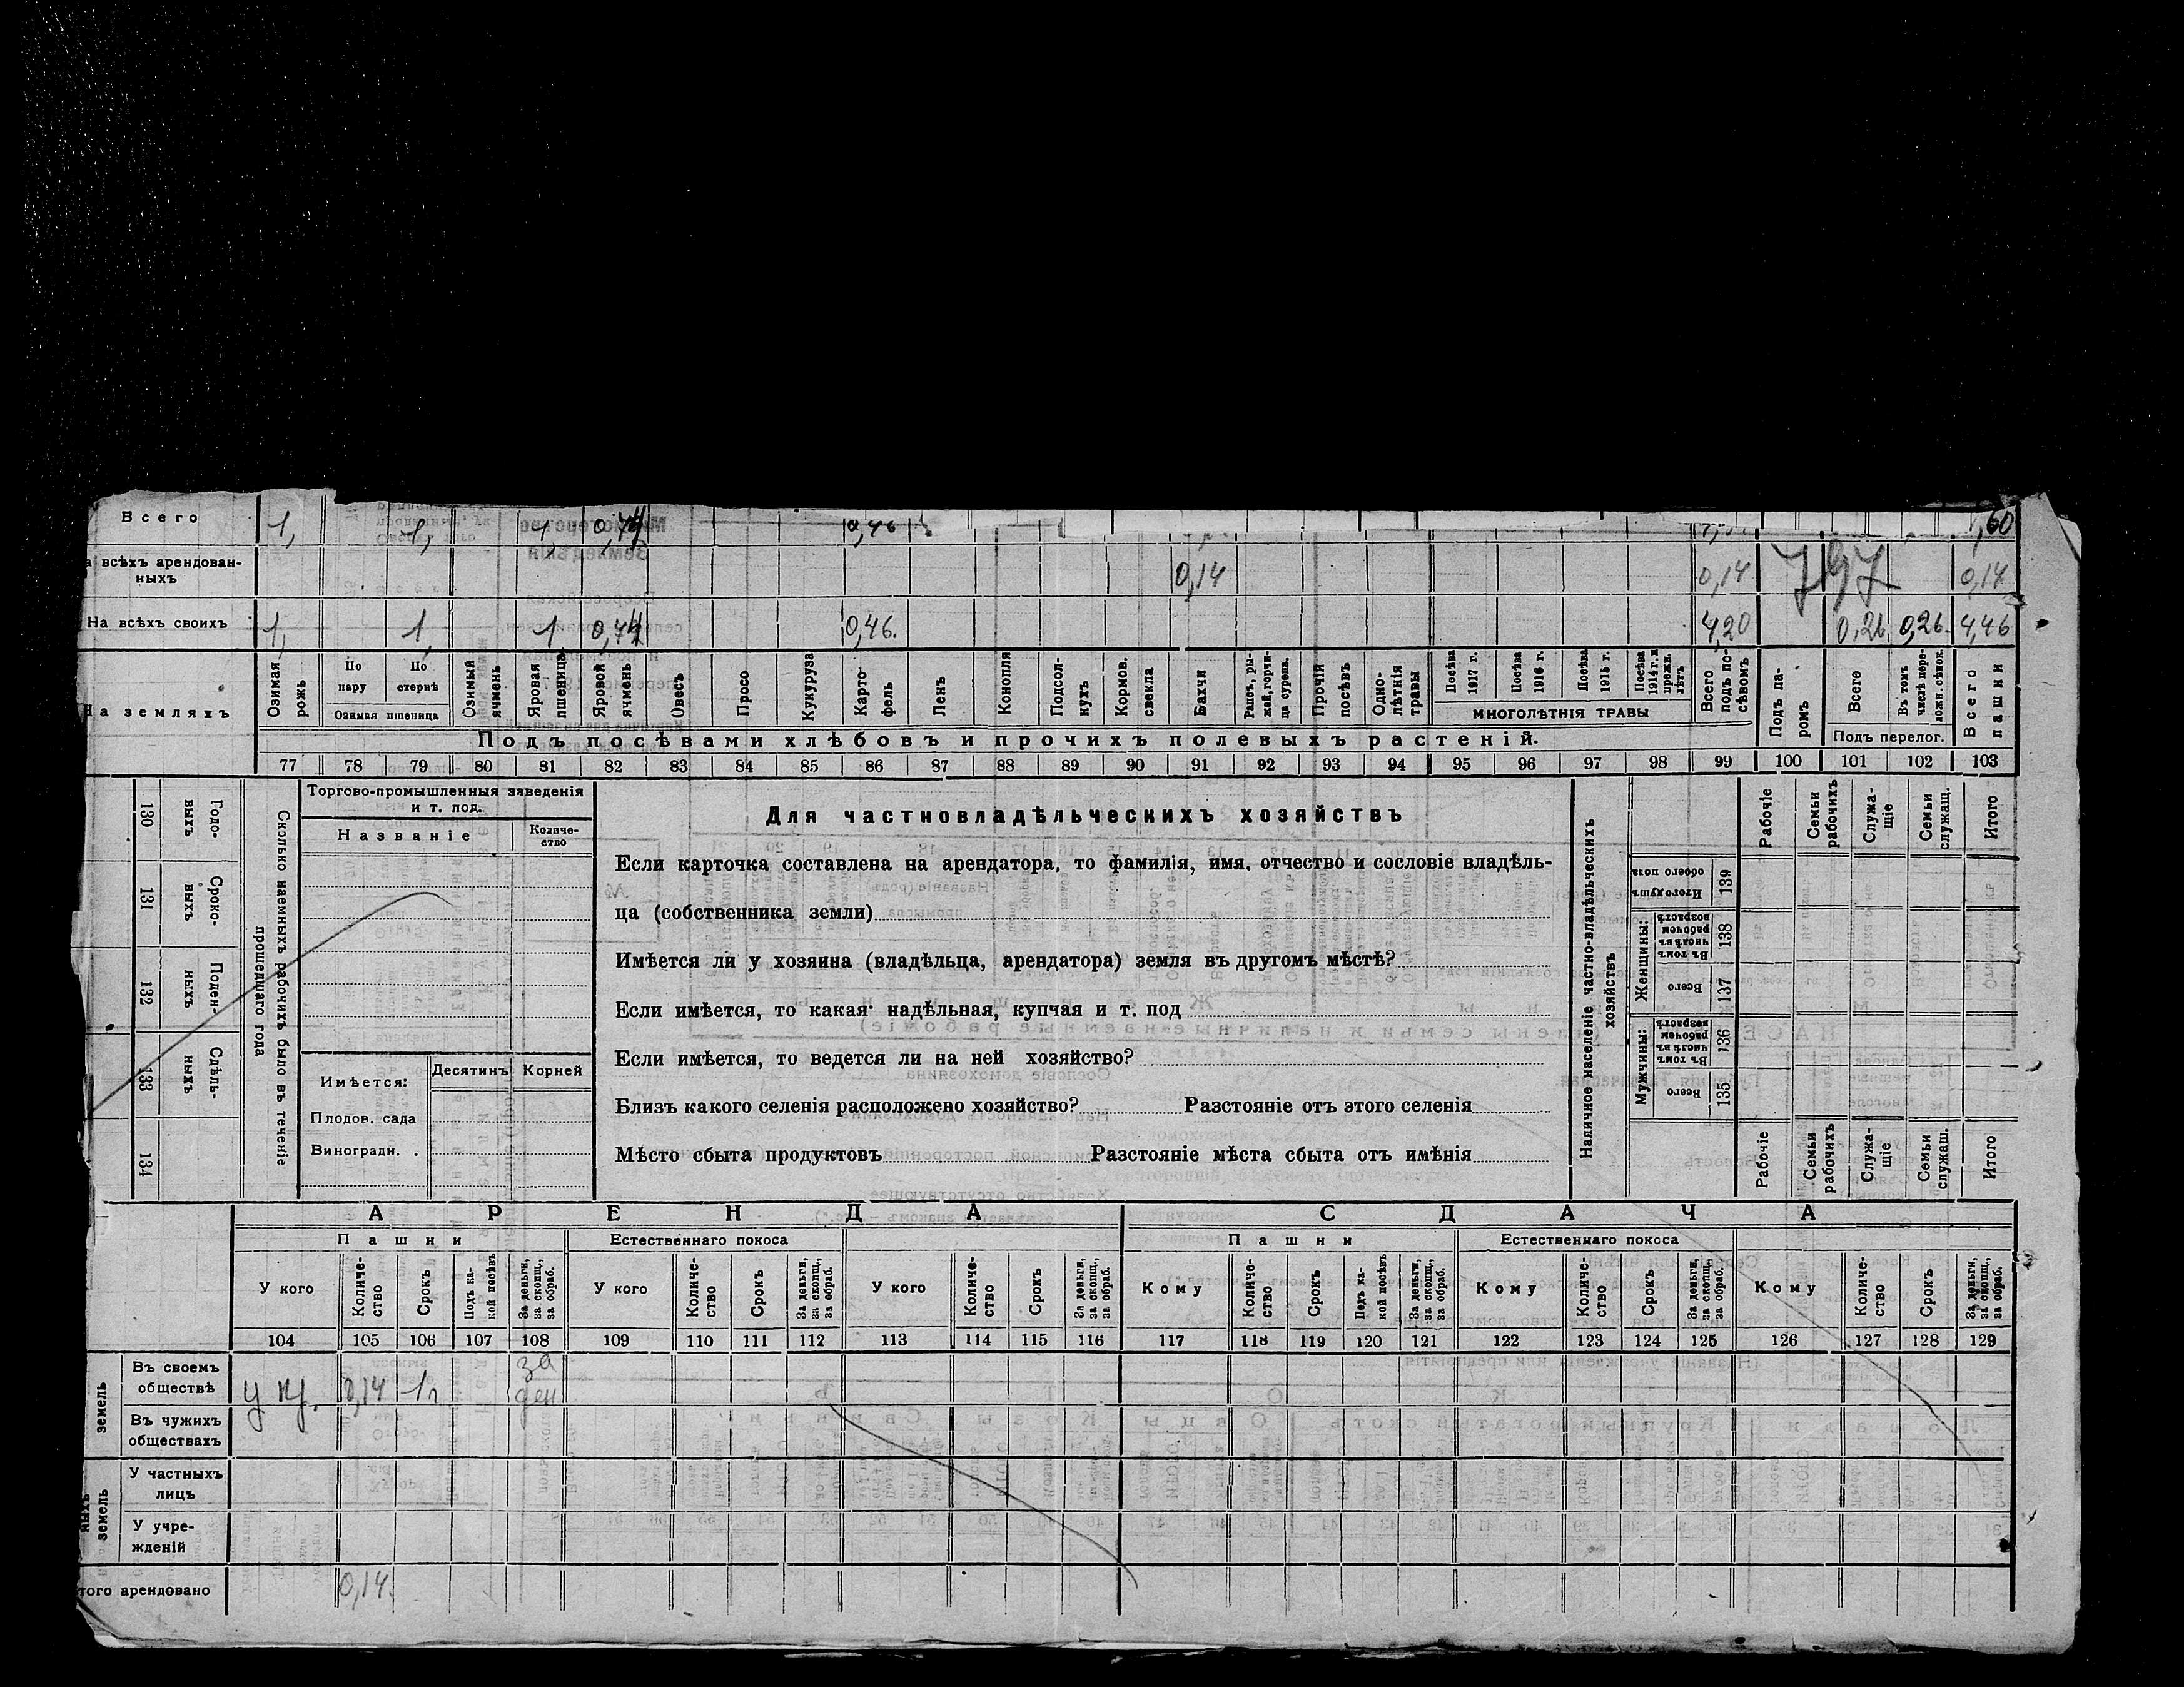 Всего 1, 1, 1, 0,74 0,46 1,60
а всѣхъ арендован-
ныхъ 0,14 0,14 797 0,14
На всѣхъ своихъ 1, 1, 1 0,74 0,46. 4,20 0,26 0,26. 4,46
На земляхъ
Озимая рожь
По пару
По стернѣ
Озимая пшеница
Озимый ячмень
Яровая пшеница
Яровой ячмень
Овесъ
Просо
Кукуруза
Карто-
фель
Ленъ
Конопля
Подсол-
нухъ
Кормов. свекла
Бахчи
Рапсъ, ры-
жей, горчи-
ца сурепа.
Прочій посѣвъ
Одно-
лѣтнія травы
Посѣва 1917 г.
Посѣва 1916 г.
Посѣва 1915 г.
Посѣва 1914 г. и прежн. лѣтъ
МНОГОЛѢТНІЯ ТРАВЫ
Всего подъ по-
сѣвомъ
Подъ па-
ромъ
Всего
Въ томъ числѣ пере-
ложн. сѣнок.
Подъ перелог.
Всего пашни
Подъ посѣвами хлѣбовъ и прочихъ полевыхъ растеній.
77 78 79 80 81 82 83 84 85 86 87 88 89 90 91 92 93 94 95 96 97 98 99 100 101 102 103
130 Годо-
выхъ
131 Сроко-
выхъ
132 Поден-
ныхъ
133 Сдѣль-
ныхъ
134
Сколько наемныхъ рабочихъ было въ теченіе
прошедшаго года
Торгово-промышленныя заведенія
и т. под.
Названіе
Количе-
ство
Имѣется:
Десятинъ Корней
Плодов. сада
Виноградн. .
Для частновладѣльческихъ хозяйствъ
Если карточка составлена на арендатора, то фамилія, имя, отчество и сословіе владѣль-
ца (собственника земли)
Имѣется ли у хозяина (владѣльца, арендатора) земля въ другомъ мѣстѣ?
Если имѣется, то какая надѣльная, купчая и т. под
Если имѣется, то ведется ли на ней хозяйство?
Близъ какого селенія расположено хозяйство? Разстояніе отъ этого селенія
Мѣсто сбыта продуктовъ Разстояніе мѣста сбыта отъ имѣнія
Наличное населеніе частно-владѣльческихъ
хозяйствъ
Рабочіе
Семьи рабочихъ
Служа-
щіе
Семьи служащ.
Итого
Итого душъ обоего пола 139
Женщины:
Въ томъ числѣ въ рабочем возрастѣ 138
Всего 137
Мужчины:
Въ томъ числѣ въ рабочем возрастѣ 136
Всего 135
Рабочіе
Семьи рабочихъ
Служа-
щіе
Семьи служащ.
Итого
АРЕНДА СДАЧА
Пашни Естественнаго покоса Пашни Естественнаго покоса
У кого
Количе-
ство
Срокъ
Подъ ка-
кой посѣвъ
За деньги, за скопщ., за обраб.
У кого
Количе-
ство
Срокъ
За деньги, за скопщ., за обраб.
У кого
Количе-
ство
Срокъ
За деньги, за скопщ., за обраб.
Кому
Количе-
ство
Срокъ
Подъ ка-
кой посѣвъ
За деньги, за скопщ., за обраб.
Кому
Количе-
ство
Срокъ
За деньги, за скопщ., за обраб.
Кому
Количе-
ство
Срокъ
За деньги, за скопщ., за обраб.
104 105 106 107 108 109 110 111 112 113 114 115 116 117 118 119 120 121 122 123 124 125 126 127 128 129
земель
Въ своемъ
обществѣ 0,14 1 г за
ден
Въ чужихъ
обществахъ
ныхъ земель
У частныхъ
лицъ
У учре-
жденій
того арендовано 0,14.